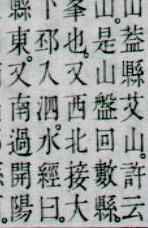 葢縣艾山。許云
山。是山盤回數縣。
峯也。又西北接大
下邳入泗。水經曰
縣東。又南過開陽